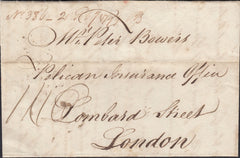 Mr. Peter Bowers
Pelican Insurance Office
Lombard Street
London